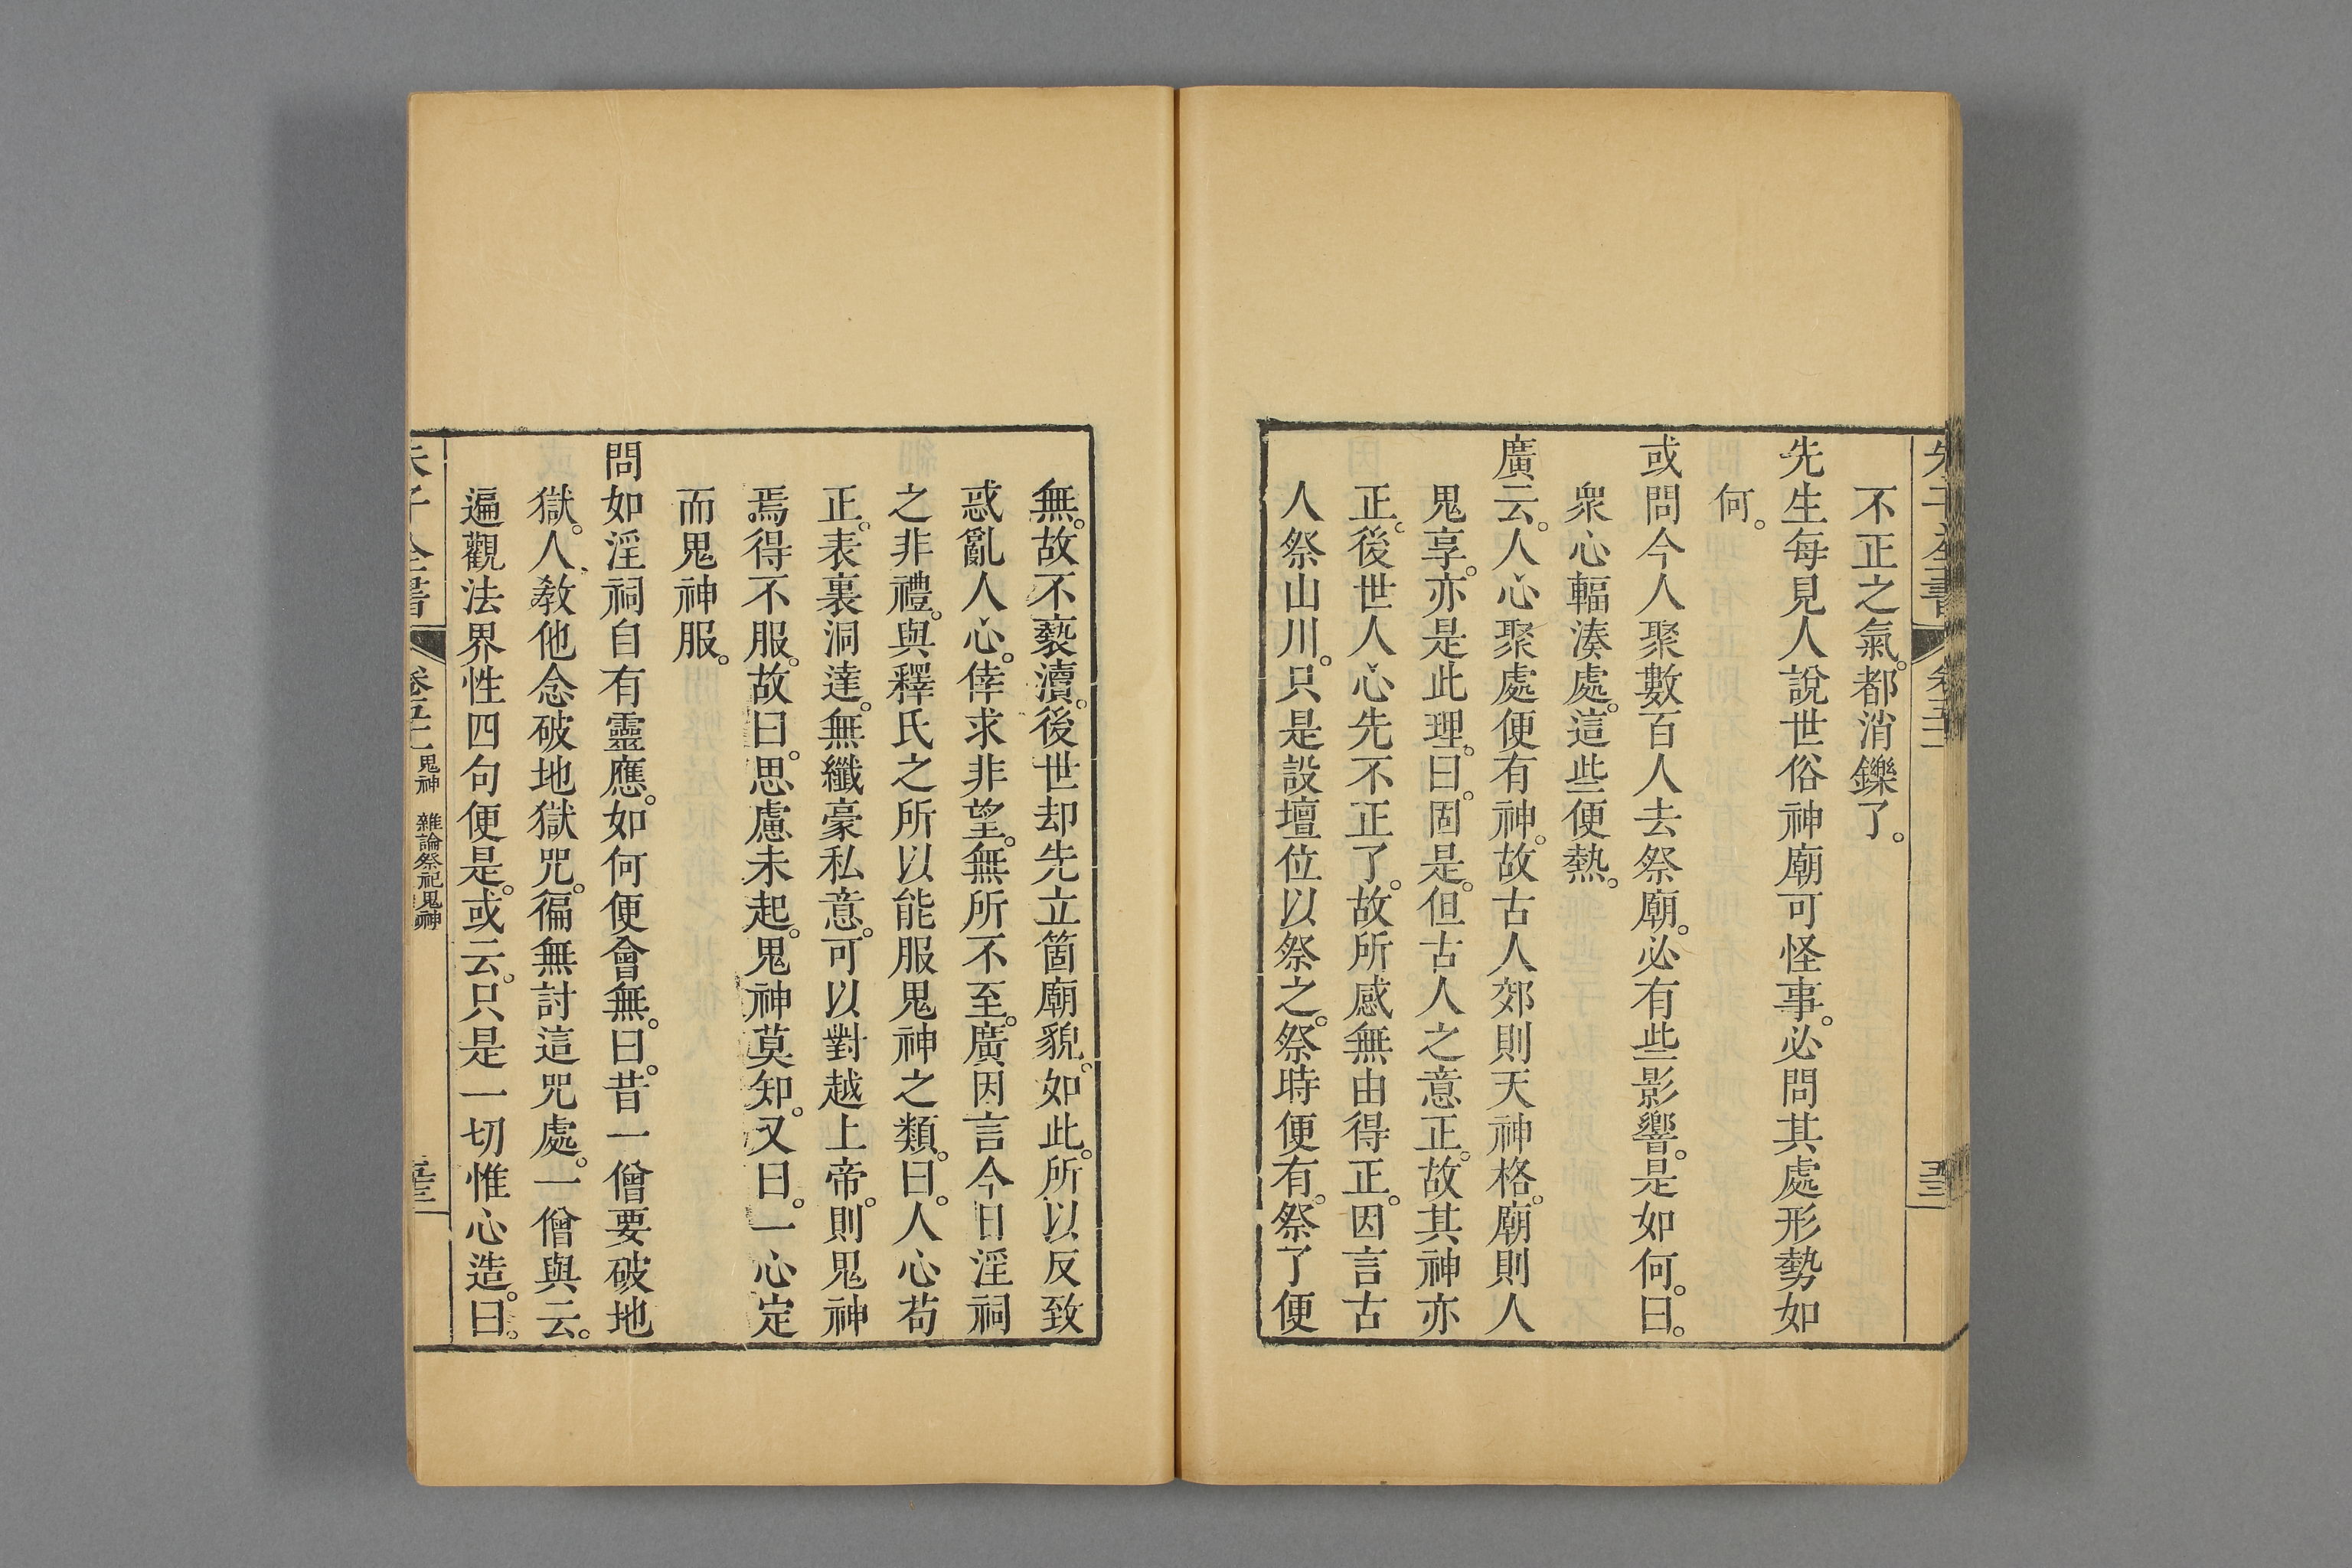 不正之氣。都消鑠了。
先生每見人說世俗神廟可怪事。必問其處形勢如
何。
或問今人聚數百人去祭廟。必有些影響。是如何。曰。
衆心輻湊處。這些便熱。
廣云。人心聚處便有神。故古人郊則天神格。廟則人
鬼享。亦是此理。曰。固是。但古人之意正。故其神亦
正。後世人心先不正了。故所感無由得正。因言古
人祭山川。只是設壇位以祭之。祭時便有。祭了便
無。故不褻瀆。後世却先立箇廟貌。如此。所以反致
惑亂人心。倖求非望。無所不至。廣因言今日淫祠
之非禮。與釋氏之所以能服鬼神之類。曰。人心苟
正。表裏洞達。無纖豪私意。可以對越上帝。則鬼神
焉得不服。故曰。思慮未起。鬼神莫知。又曰。一心定
而鬼神服。
問如淫祠自有靈應。如何便會無。曰。昔一僧要破地
獄。人敎他念破地獄咒。徧無討這咒處。一僧與云。
遍觀法界性四句便是。或云。只是一切惟心造。曰。
朱子全書 卷五十一 鬼神 雜論祭祀鬼神 五三